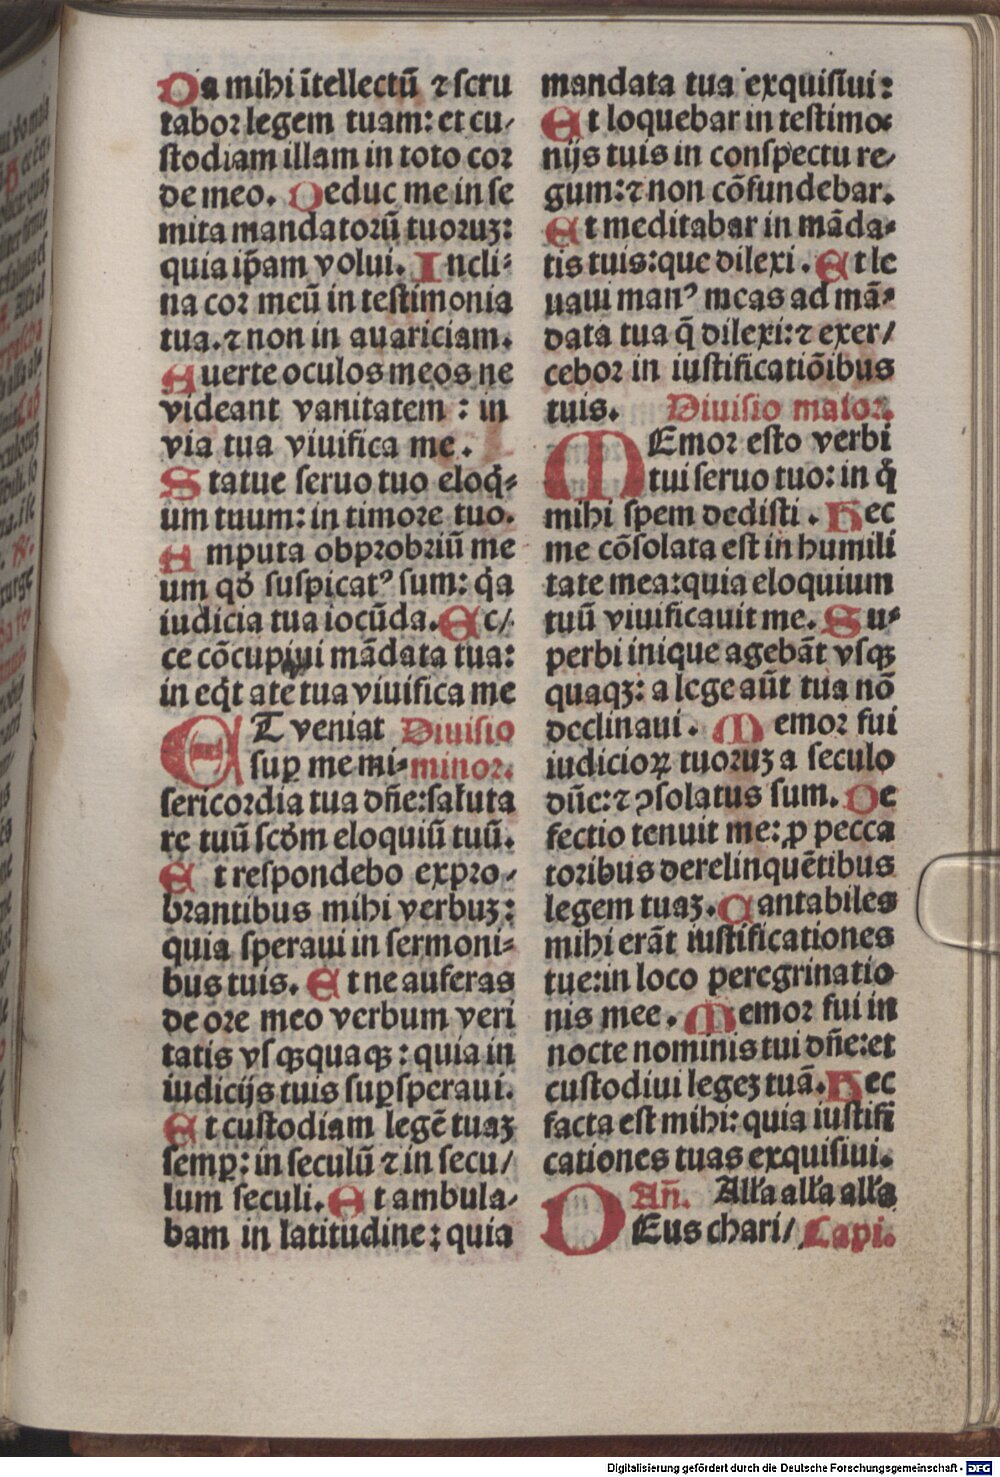 Da mihi ītellectū ⁊ scru
tabor legem tuam: et cu/
stodiam illam in toto cor
de meo. Deduc me in se
mita mandatorū tuoruꝫ:
quia ip̄am volui. Incli⸗
na cor meū in testimonia
tua. ⁊ non in auariciam.
Auerte oculos meos ne
videant vanitatem : in
via tua viuifica me.
Statue seruo tuo eloq̇⸗
um tuum: in timore tuo.
Amputa obprobriū me
um qd̓ suspicatꝰ sum: q̇a
iudicia tua iocūda. Ec/
ce cōcupiui mādata tua:
in eq̇tate tua viuifica me
ET veniat Diuisio
suꝑ me mi⸗ minor.
sericordia tua dn̄e: saluta
re tuū scd̓m eloquiū tuū.
Et respondebo expro/
brantibus mihi verbuꝫ:
quia speraui in sermoni⸗
bus tuis. Et ne auferas
de ore meo verbum veri
tatis vsqꝫquaqꝫ: quia in
iudicijs tuis suꝑsperaui.
Et custodiam legē tuaꝫ
semꝑ: in seculū ⁊ in secu/
lum seculi. Et ambula/
bam in latitudine: quia
mandata tua exquisiui:
Et loquebar in testimo⸗
nijs tuis in conspectu re/
gum: ⁊ non cōfundebar.
Et meditabar in māda⸗
tis tuis: que dilexi. Et le
uaui manꝰ meas ad mā⸗
data tua q̄ dilexi: ⁊ exer/
cebor in iustificatiōibus
tuis. Diuisio maior.
MEmor esto verbi
tui seruo tuo: in q̇
mihi spem dedisti. Hec
me cōsolata est in humili
tate mea: quia eloquium
tuū viuificauit me. Su⸗
perbi inique agebāt vsqꝫ
quaqꝫ: a lege aūt tua nō
declinaui. Memor fui
iudicioꝝ tuoruꝫ a seculo
dn̄e: ⁊ ꝯsolatus sum. De
fectio tenuit me: ꝓ pecca
toribus derelinquētibus
legem tuaꝫ. Cantabiles
mihi erāt iustificationes
tue: in loco peregrinatio
nis mee. Memor fui in
nocte nominis tui dn̄e: et
custodiui legeꝫ tuā. Hec
facta est mihi: quia iustifi
cationes tuas exquisiui.
Añ. Alľa alľa alľa
DEus chari/ Capi.
Digitalisierung gefördert durch die Deutsche Forschungsgemeinschaft - DFG